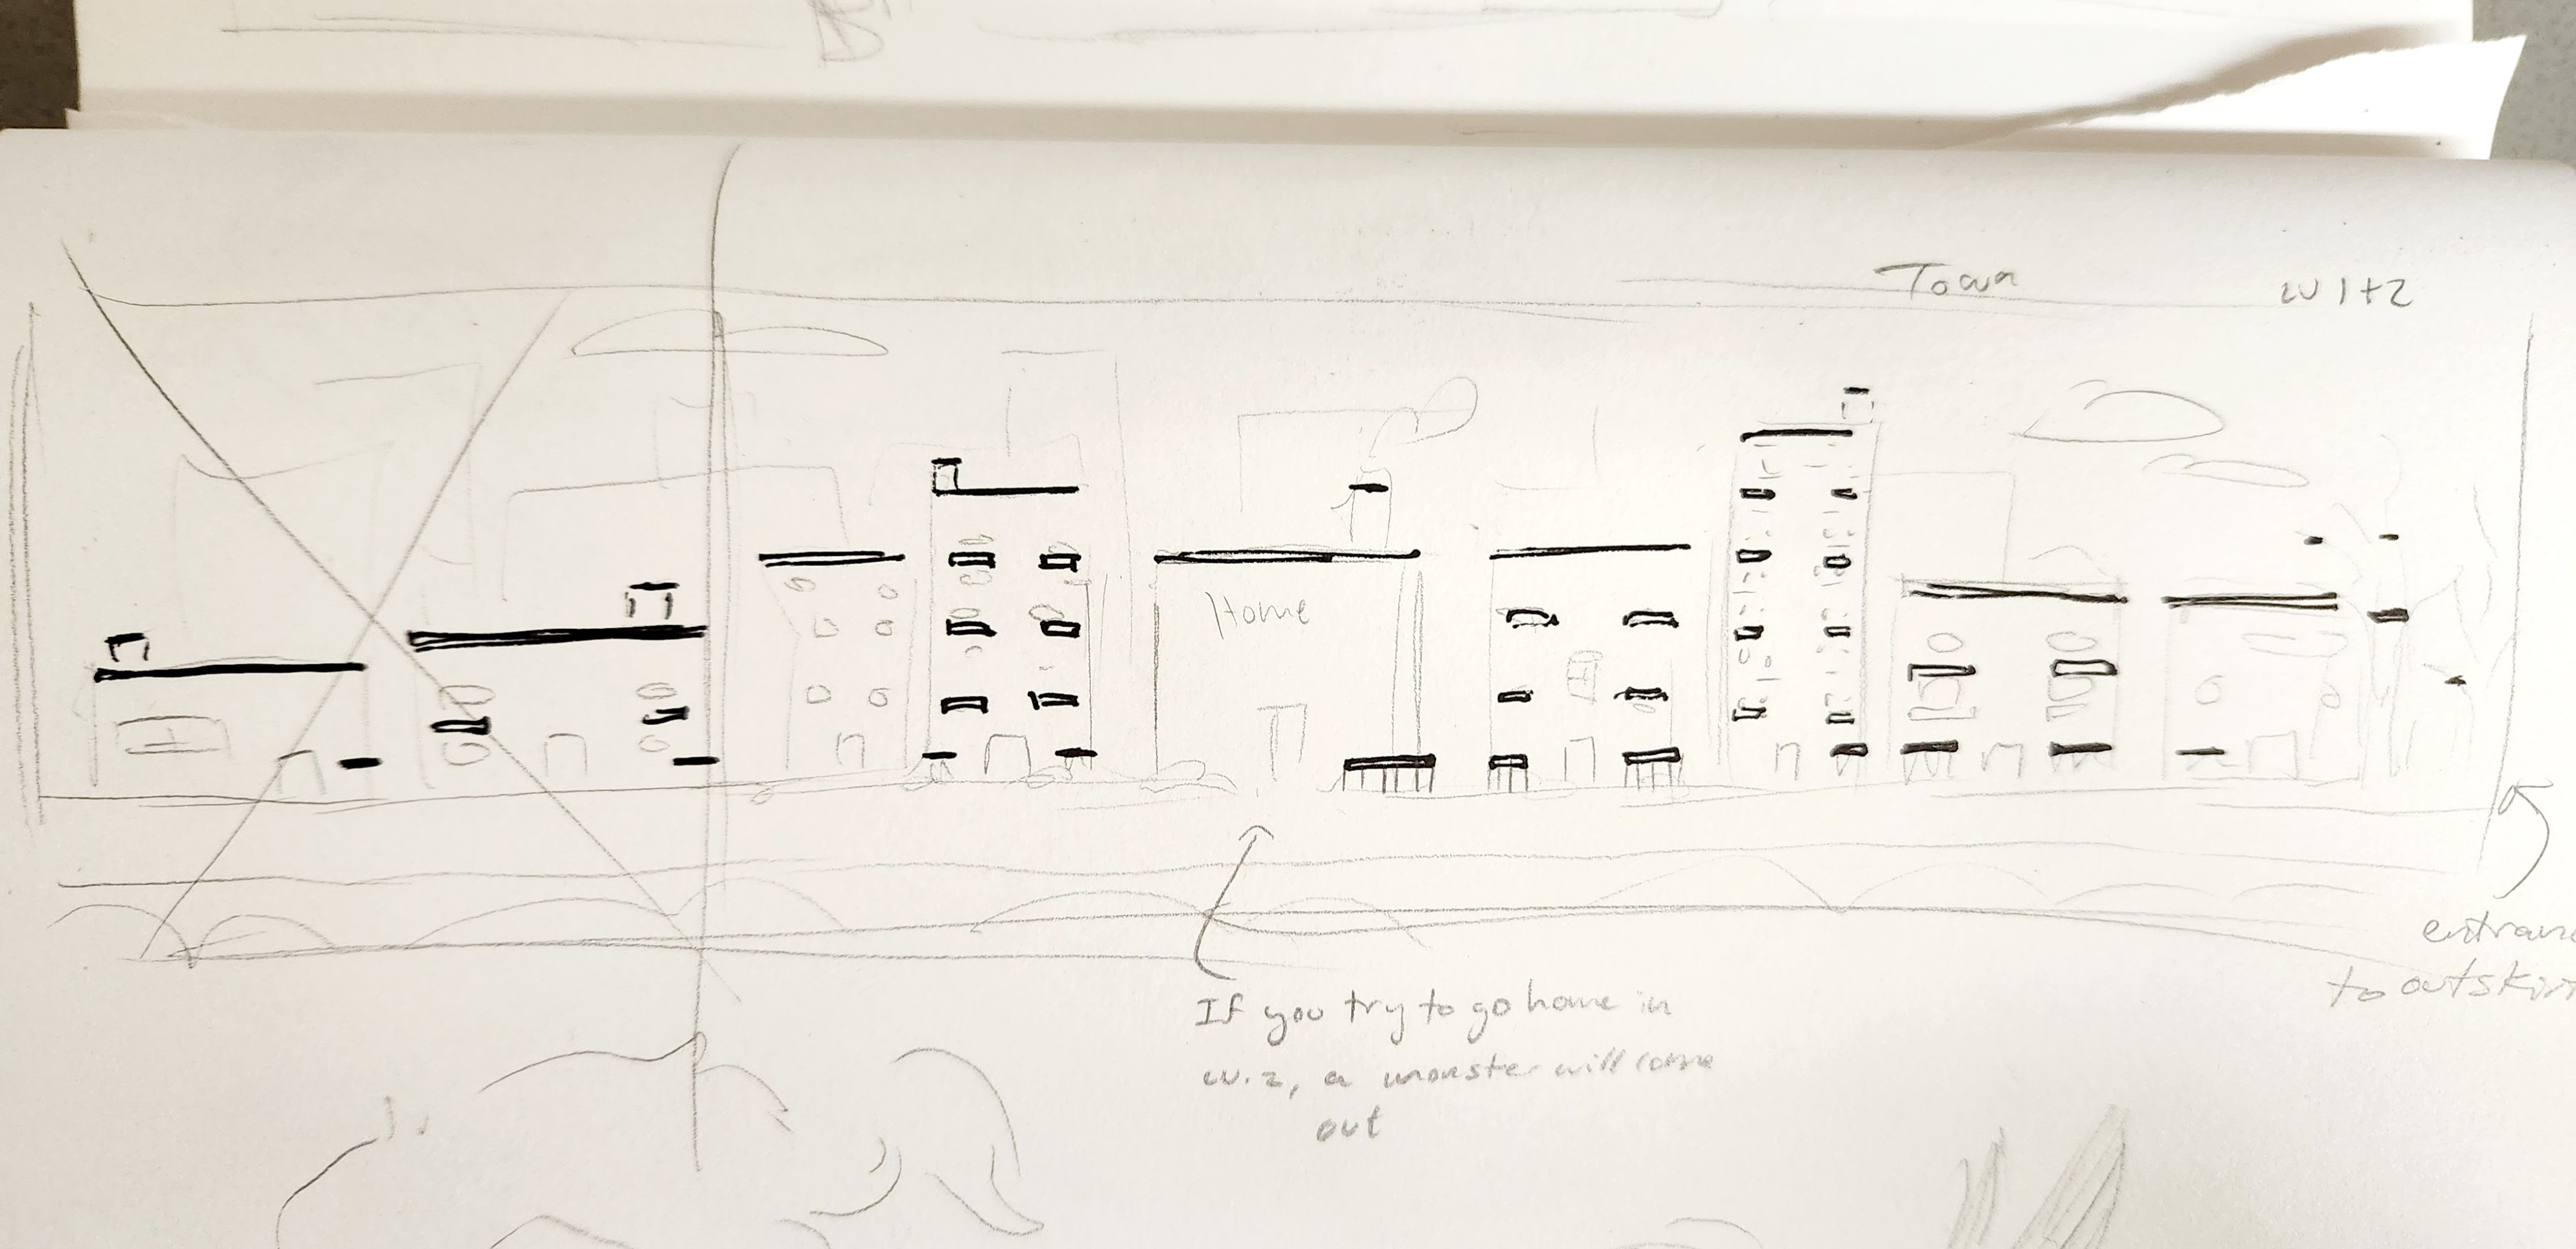 Town
W 1+2
Home
If you try to go home in
W.2, a monster will come
out
entranc
to outskirt